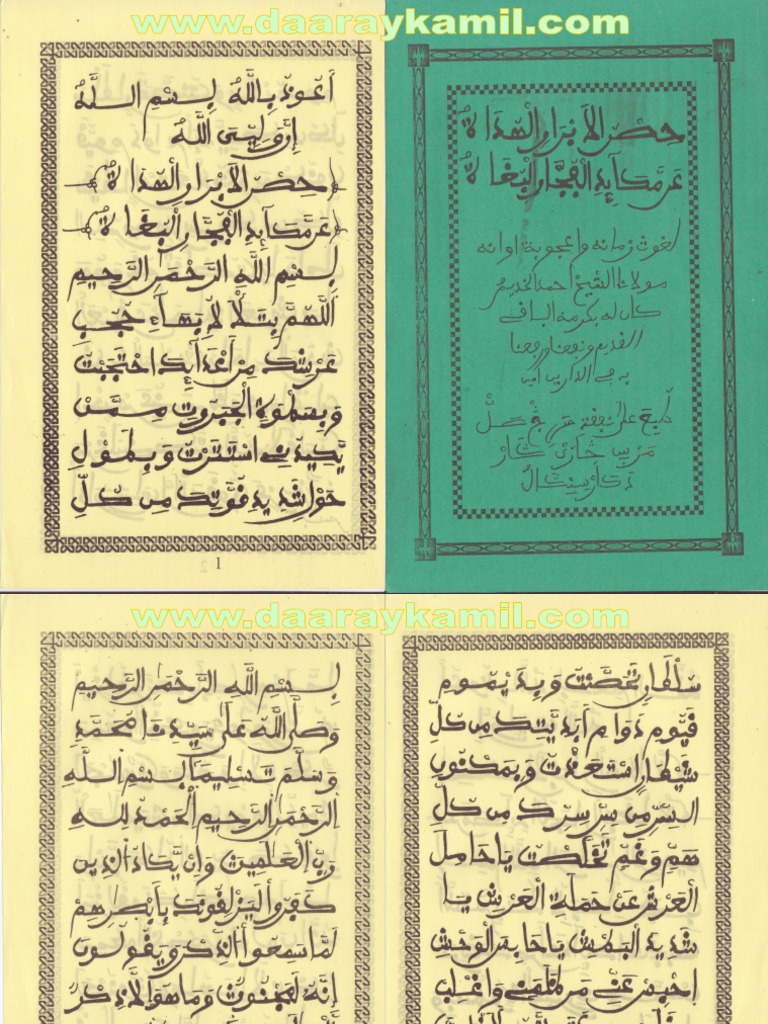 www.daaraykamil.com
حِصْنُ الأَبْرَارِ الْهُدَاةْ
عَن مَّكَآئِدِ الْفُجَّارِ الْبُغَاةْ
لغوث زمانه واعجوبة اوانه
مولانا الشيخ احمد الخديم
كان له بكرمه الباقي
القديم ونفعنا ورحمنا
به في الدارين امين
طبع على نفقة
أَعُوذُ بِاللَّهِ بِسْمِ اللَّهِ
إِنَّ وَلِيِّىَ اللَّهُ
حِصْنُ الأَبْرَارِ الْهُدَاةْ
عَن مَّكَآئِدِ الْفُجَّارِ الْبُغَاةْ
بِسْمِ اللَّهِ الرَّحْمَنِ الرَّحِيمِ
اللَّهُمَّ بِتَلَأْلُإِ بَهَآءِ حُجُبِ
عَرْشِكَ مِنْ أَعْدَآئِى احْتَجَبْتُ
وَبِسَطْوَةِ الْجَبَرُوتِ مِمَّنْ
يَّكِيدُنِى اسْتَتَرْتُ وَبِطَوْلِ
حَوْلِ شَدِيدِ قُوَّتِكَ مِن كُلِّ
1
www.daaraykamil.com
سُلْطَانٍ تَحَصَّنْتُ وَبِدَيْمُومِ
قَيُّومِ دَوَامِ أَبَدِيَّتِكَ مِن كُلِّ
شَيْطَانٍ اسْتَعَذْتُ وَبِمَكْنُونِ
السِّرِّ مِن سِرِّ سِرِّكَ مِن كُلِّ
هَمٍّ وَغَمٍّ تَخَلَّصْتُ يَا حَامِلَ
الْعَرْشِ عَنْ حَمَلَةِ الْعَرْشِ يَا
شَدِيدَ الْبَطْشِ يَا حَابِسَ الْوَحْشِ
اِحْبِسْ عَنِّى مَن ظَلَمَنِى وَاغْلِبْ
بِسْمِ اللَّهِ الرَّحْمَنِ الرَّحِيمِ
وَصَلَّى اللَّهُ عَلَى سَيِّدِنَا مُحَمَّدٍ
وَسَلَّمَ تَسْلِيمًا بِسْمِ اللَّهِ
الرَّحْمَنِ الرَّحِيمِ الْحَمْدُ لِلَّهِ
رَبِّ الْعَالَمِينَ وَإِنْ يَّكَادُ الَّذِينَ
كَفَرُوا لَيَزْلِقُونَكَ بِأَبْصَرِهِمْ
لَمَّا سَمِعُوا الذِّكْرَ وَيَقُولُونَ
إِنَّهُ لَمَجْنُونٌ وَمَا هُوَ إِلاَّ ذِكْرٌ